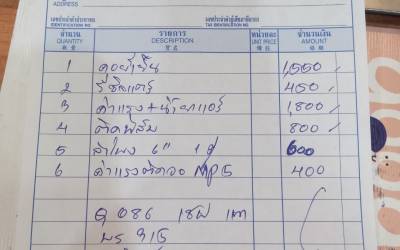 ADDRESS
เลขประจำตัวประชาชน เลขประจำตัวผู้เสียภาษีอากร
IDENTIFICATION NO. TAX IDENTIFICATION NO.
จำนวน รายการ หน่วยละ จำนวนเงิน
QUANTITY DESCRIPTION UNIT PRICE AMOUNT
1 คอยล์เย็น 1,550
2 รีซิสเตอร์ 450
3 ค่าแรง+น้ำยาแอร์ 1,800
4 ติดฟิล์ม 800
5 ลำโพง 6" 1 คู่ 600
6 ค่าแรงติดจอ MP5 400
086